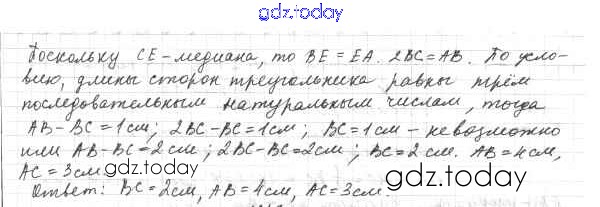 gdz.today
Поскольку CE-медиана, то BE=EA. 2BC=AB. По усло-
вию, длины сторон треугольника равны трём
последовательным натуральным числам, тогда
AB-BC=1см; 2BC-BC=1см; BC=1см-невозможно
или AB-BC=2см; 2BC-BC=2см; BC=2см. AB=4см,
AC=3см.
Ответ: BC=2см, AB=4см, AC=3см.
gdz.today
gdz.today